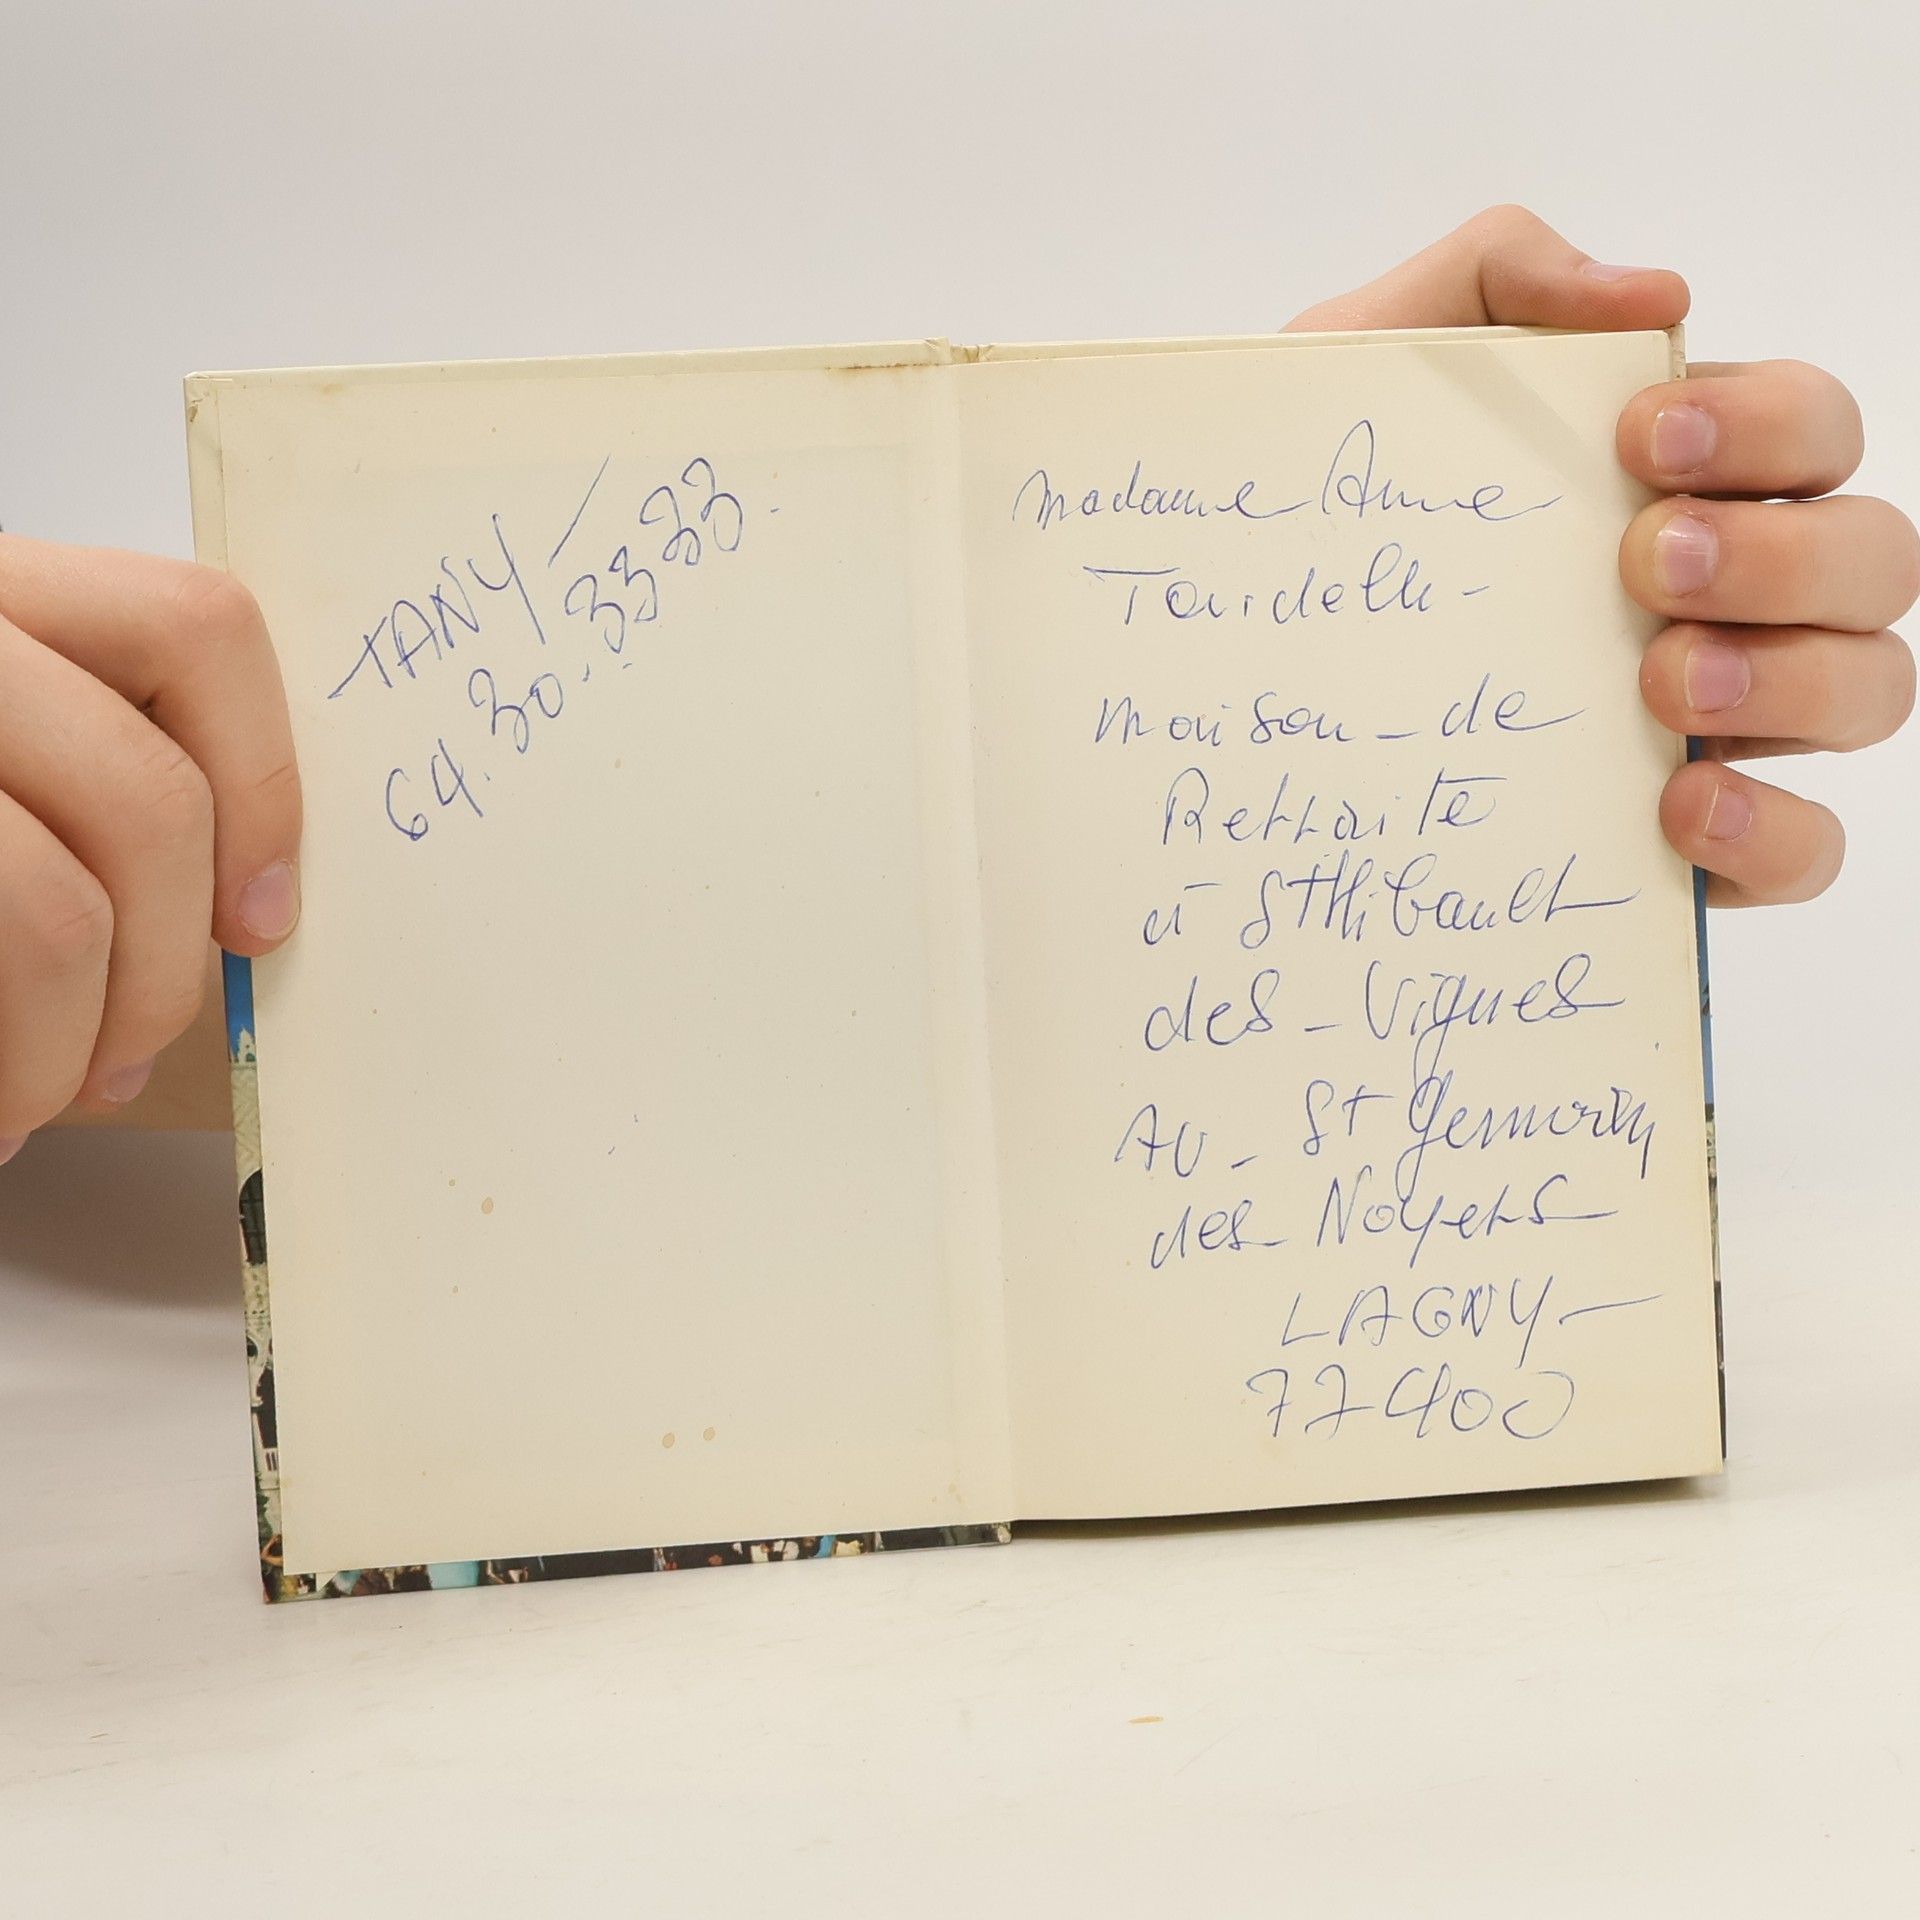 TANY/
64.30..33 33.
Madame Anne
Maison - de
Retraite
à St Thibault
des - Vignes
Av - St Germain
des Noyers
LAGNY -
77400